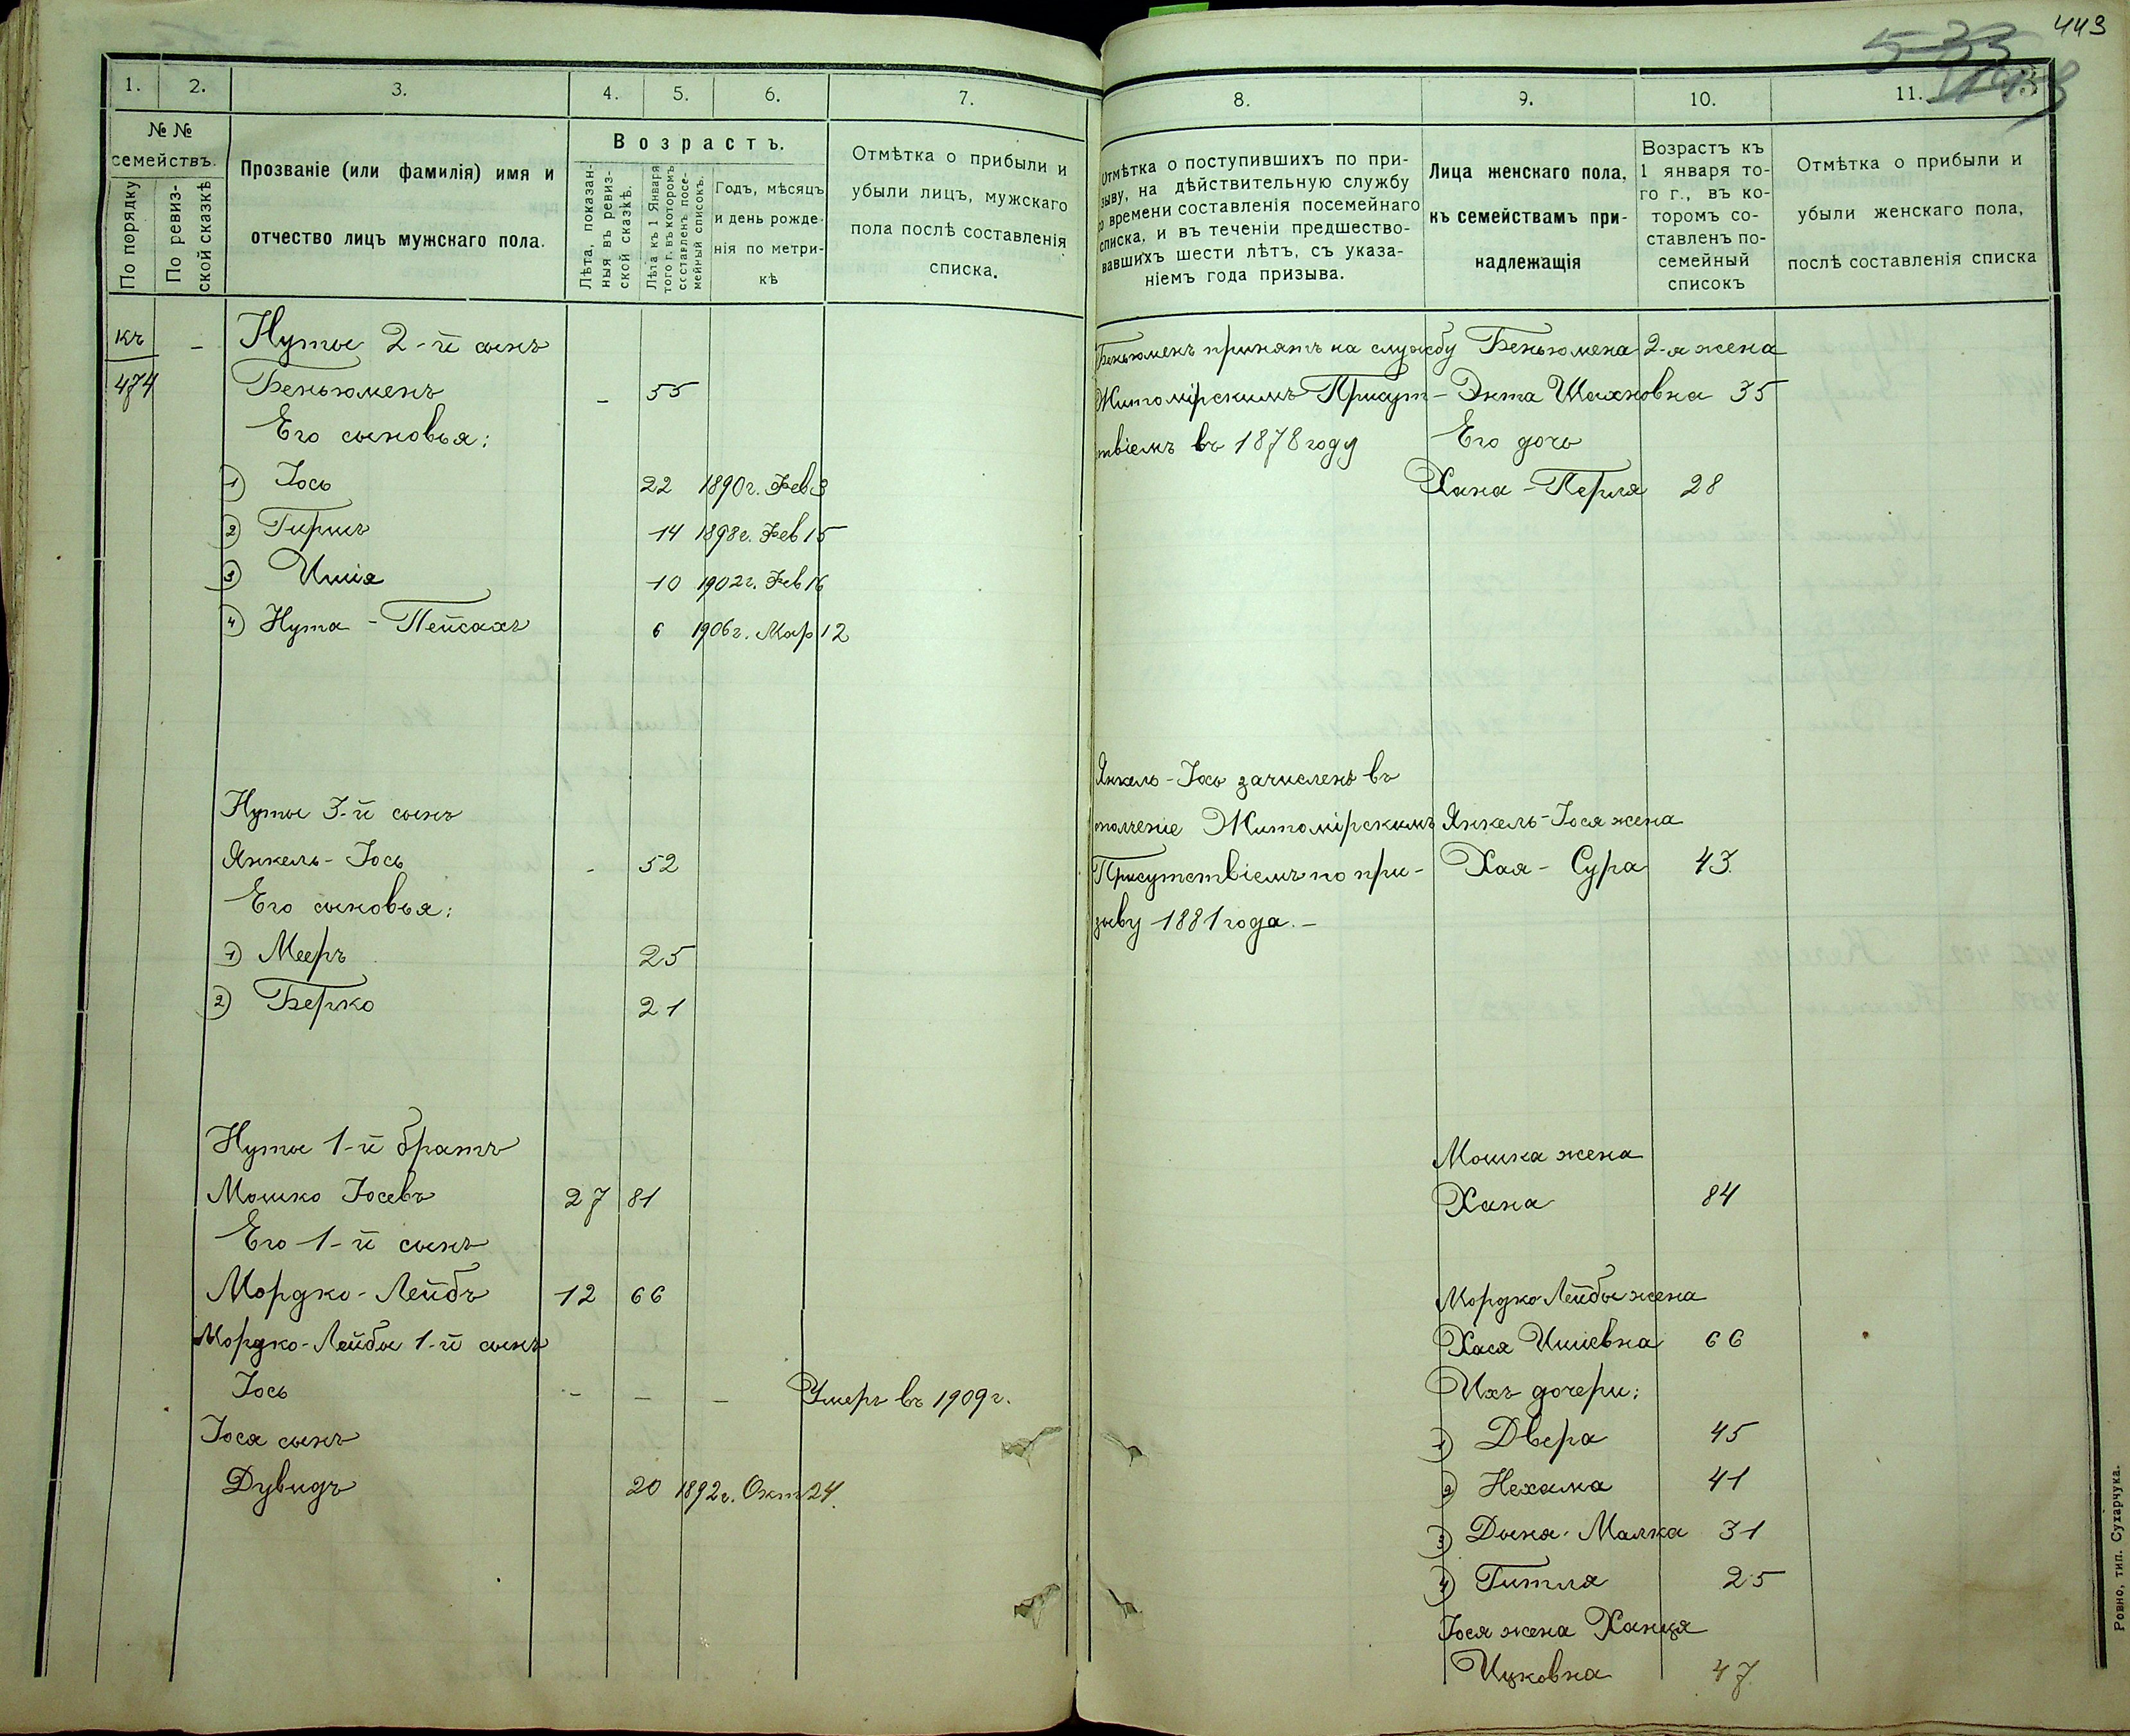 443
533
1. 2. 3. 4. 5. 6. 7.
№ №
семействъ.
По порядку
По ревиз-
ской сказкѣ
Прозваніе (или фамилія) имя и
отчество лицъ мужскаго пола.
Возрастъ.
Лѣта, показан-
ныя въ ревиз-
ской сказкѣ.
Лѣта къ 1 Января
того г. въ которомъ
составленъ посе-
мейный списокъ.
Годъ, мѣсяцъ
и день рожде-
нія по метри-
кѣ
Отмѣтка о прибыли и
убыли лицъ, мужскаго
пола послѣ составленія
списка.
къ
474
– Нуты 2-й сынъ
Беньюменъ – 55
Его сыновья:
1) Іось 22 1890 г. Фев 3
2) Гиршъ 14 1898 г. Фев 15
3) Ишія 10 1902 г. Фев 16
4) Нута-Пейсахъ 6 1906 г. Мар 12
Нуты 3-й сынъ
Янкель-Іось - 52
Его сыновья:
1) Мееръ 25
2) Берко 21
Нуты 1-й братъ
Мошко Іосевъ 27 81
Его 1-й сынъ
Мордко-Лейбъ 12 66
Мордко-Лейбы 1-й сынъ
Іось – – – Умеръ въ 1909 г.
Іося сынъ
Дувидъ 20 1892 г. Окт 24.
8. 9. 10. 11.
Отмѣтка о поступившихъ по при-
зыву, на дѣйствительную службу
со времени составленія посемейнаго
списка, и въ теченіи предшество-
вавшихъ шести лѣтъ, съ указа-
ніемъ года призыва.
Лица женскаго пола,
къ семействамъ при-
надлежащія
Возрастъ къ
1 января то-
го г., въ ко-
торомъ со-
ставленъ по-
семейный
списокъ
Отмѣтка о прибыли и
убыли женскаго пола,
послѣ составленія списка
Беньюменъ принятъ на службу
Житомірскимъ Присут-
ствіемъ въ 1878 году
Беньюмена 2-я жена
Энта Шахновна 35
Его дочь
Хана-Перля 28
Янкель-Іось зачисленъ въ
ополченіе Житомірскимъ
Присутствіемъ по при-
зыву 1881 года.–
Янкель-Іося жена
Хая-Сура 43.
Мошка жена
Хана 84
Мордко-Лейбы жена
Хася Ишіевна 66
Ихъ дочери:
1) Двера 45
2) Нехама 41
3) Дыня-Малка 31
4) Гитля 25
Іося жена Ханця
Ицковна 47.
Ровно, тип. Сухарчука.